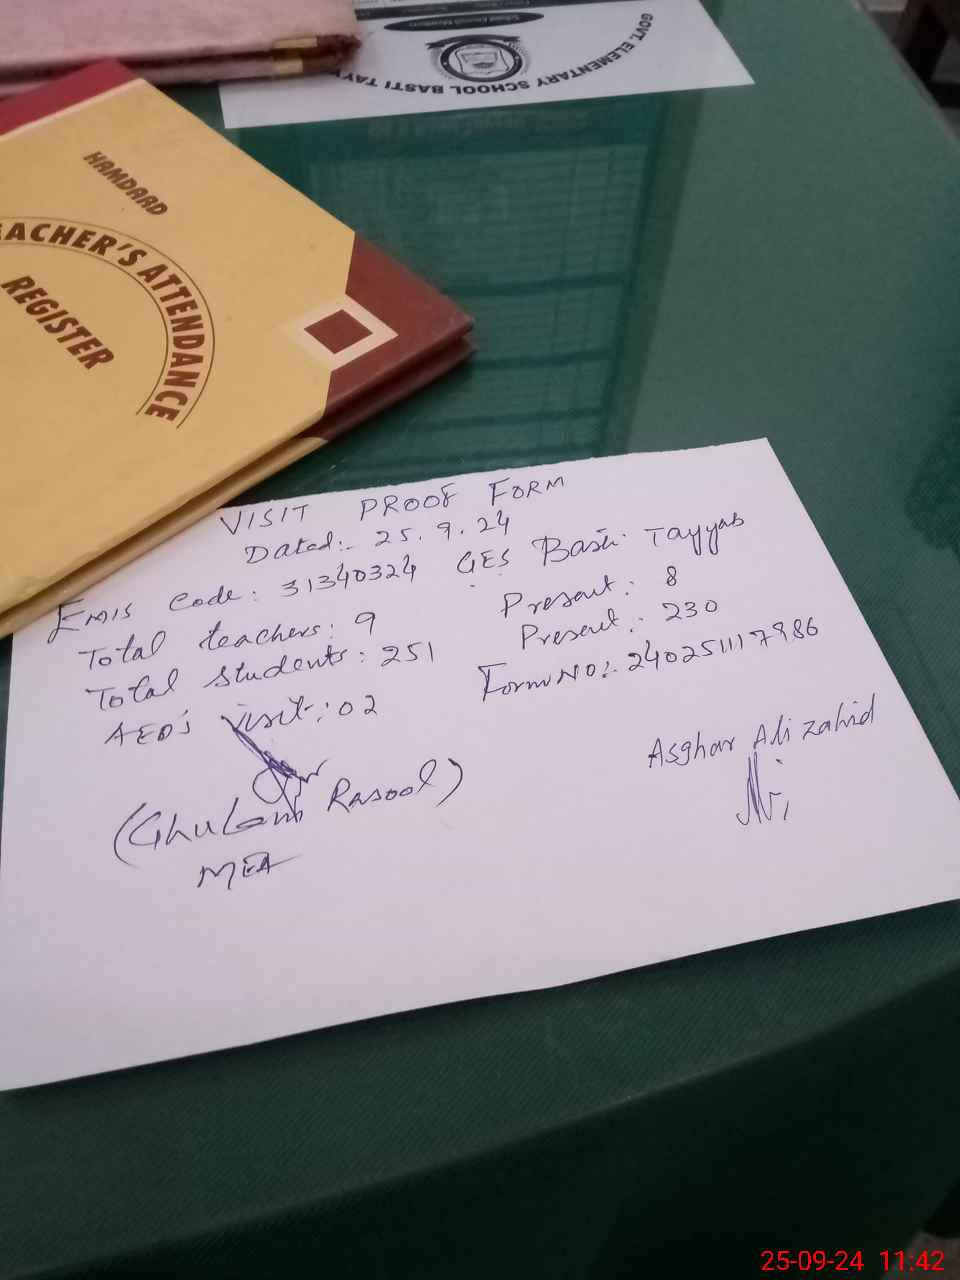 GOVT. ELEMENTARY SCHOOL BASTI TAYY
HAMDARD
EACHER'S ATTENDANCE
REGISTER
VISIT PROOF FORM
Dated:- 25.9.24
EMIS Code: 31340324 GES Basti Tayyab
Total teachers: 9 Present: 8
Total Students: 251 Present: 230
AEO's Visit: 02 Form NO:- 2402511117986
Asghar Ali Zahid
(Ghulam Rasool)
MEA
25-09-24 11:42